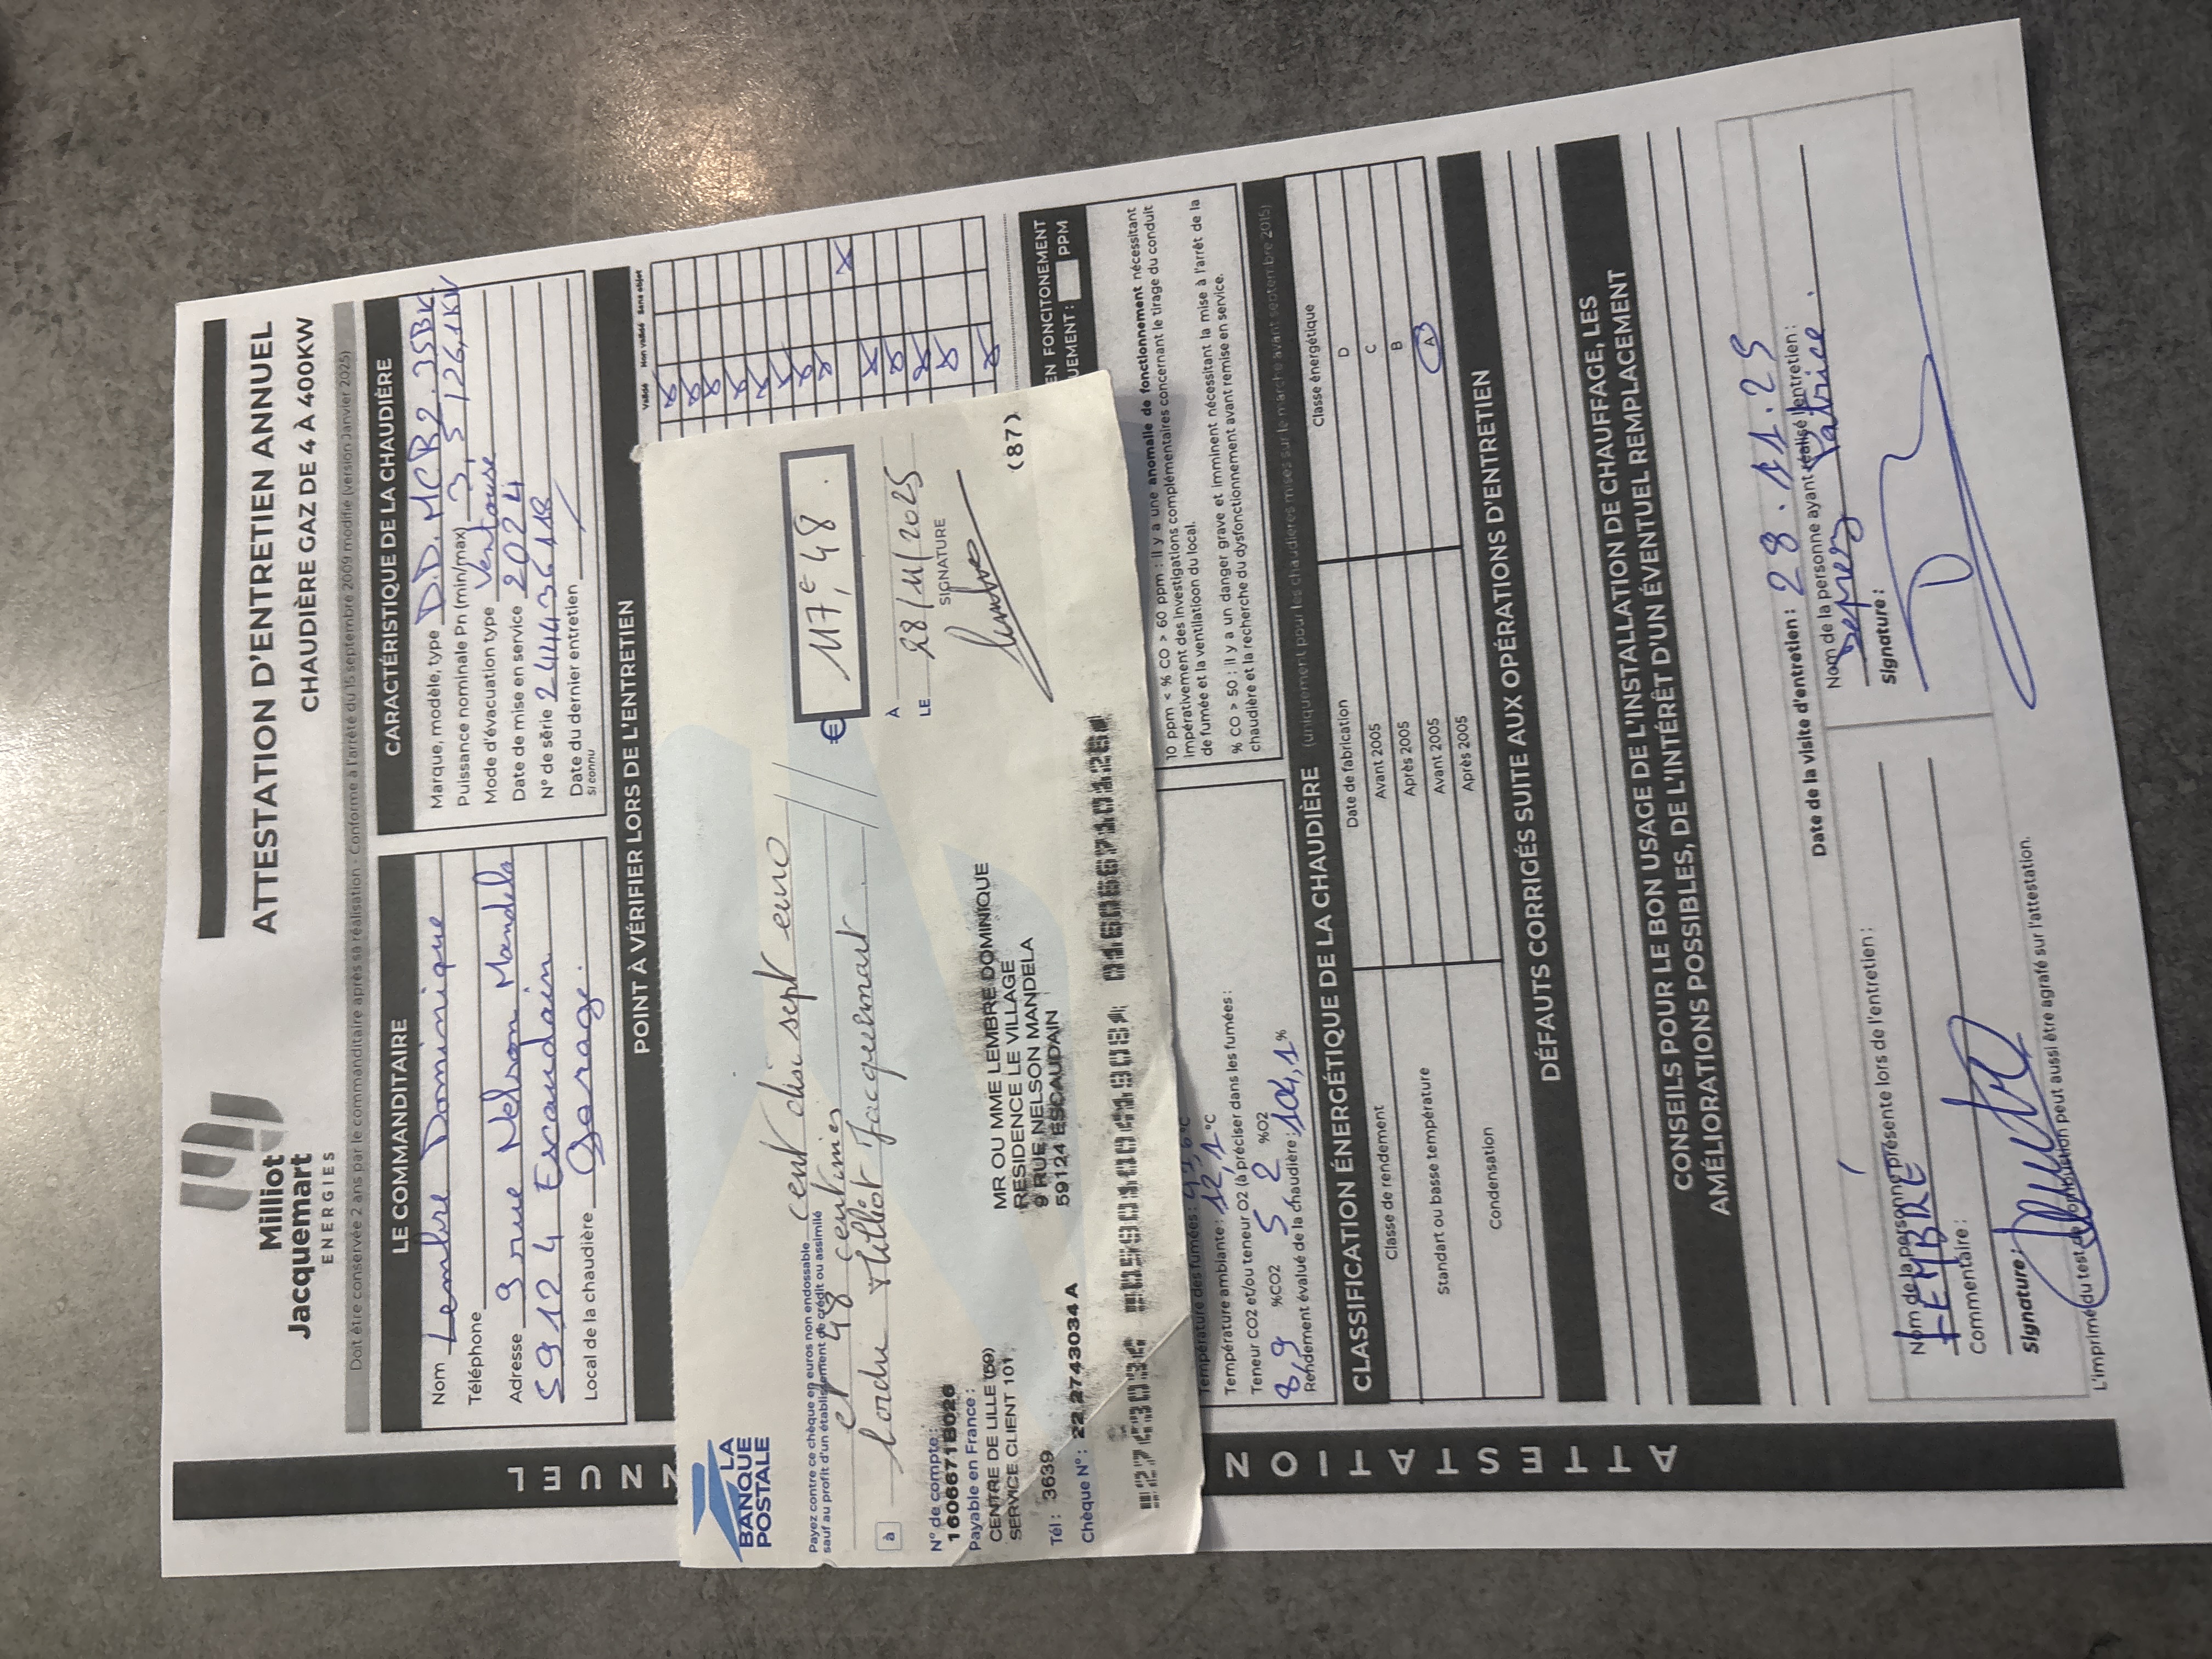 Milliot
Jacquemart
ENERGIES
ATTESTATION D'ENTRETIEN ANNUEL
CHAUDIÈRE GAZ DE 4 À 400KW
Doit être conservée 2 ans par le commanditaire après sa réalisation - Conforme à l'arrêté du 15 septembre 2009 modifié (version Janvier 2025)
LE COMMANDITAIRE
Nom Lembre Dominique
Téléphone
Adresse 9 rue Nelson Mandela
59124 Escaudain
Local de la chaudière Garage.
CARACTÉRISTIQUE DE LA CHAUDIÈRE
Marque, modèle, type D.D. MCR2. 35BK
Puissance nominale Pn (min/max) 3,5 / 26,1KW
Mode d'évacuation type Ventouse
Date de mise en service 2024
N° de série
Date du dernier entretien /
Si connu
POINT À VÉRIFIER LORS DE L'ENTRETIEN
Validé Non validé Sans objet
LA
BANQUE
POSTALE
Payez contre ce chèque en euros non endossable cent dix sept euro
sauf au profit d'un établissement de crédit ou assimilé
et 48 centimes
€ 117,€ 48.
à Milliot Jacquemart
À
LE 28/11/2025
SIGNATURE
N° de compte :
1606671B026
Payable en France :
CENTRE DE LILLE (59)
SERVICE CLIENT 101
Tél : 3639
Chèque N° : 22 2743034 A
MR OU MME LEMBRE DOMINIQUE
RESIDENCE LE VILLAGE
9 RUE NELSON MANDELA
59124 ESCAUDAIN
(87)
EN FONCITONEMENT
UEMENT : PPM
10 ppm < % CO > 60 ppm : il y a une anomalie de fonctionnement nécessitant
impérativement des investigations complémentaires concernant le tirage du conduit
de fumée et la ventilatioon du local.
% CO > 50 : il y a un danger grave et imminent nécessitant la mise à l'arrêt de la
chaudière et la recherche du dysfonctionnement avant remise en service.
Température des fumées : °C
Température ambiante : 12,1 °C
Teneur CO2 et/ou teneur O2 (à préciser dans les fumées :
8,9 %CO2 5 2 %O2
Rendement évalué de la chaudière : 104,1 %
CLASSIFICATION ÉNERGÉTIQUE DE LA CHAUDIÈRE (uniquement pour les chaudières mises sur le marché avant septembre 2015)
Classe de rendement Date de fabrication Classe énergétique
Standart ou basse température Avant 2005 D
Après 2005 C
Condensation Avant 2005 B
Après 2005 A
DÉFAUTS CORRIGÉS SUITE AUX OPÉRATIONS D'ENTRETIEN
CONSEILS POUR LE BON USAGE DE L'INSTALLATION DE CHAUFFAGE, LES
AMÉLIORATIONS POSSIBLES, DE L'INTÉRÊT D'UN ÉVENTUEL REMPLACEMENT
Date de la visite d'entretien : 28.11.25
Nom de la personne présente lors de l'entretien :
LEMBRE
Commentaire :
Signature :
Nom de la personne ayant réalisé l'entretien :
Deprez Patrice.
Signature :
L'imprimé du test de combustion peut aussi être agrafé sur l'attestation.
NNUEL
ATTESTATION